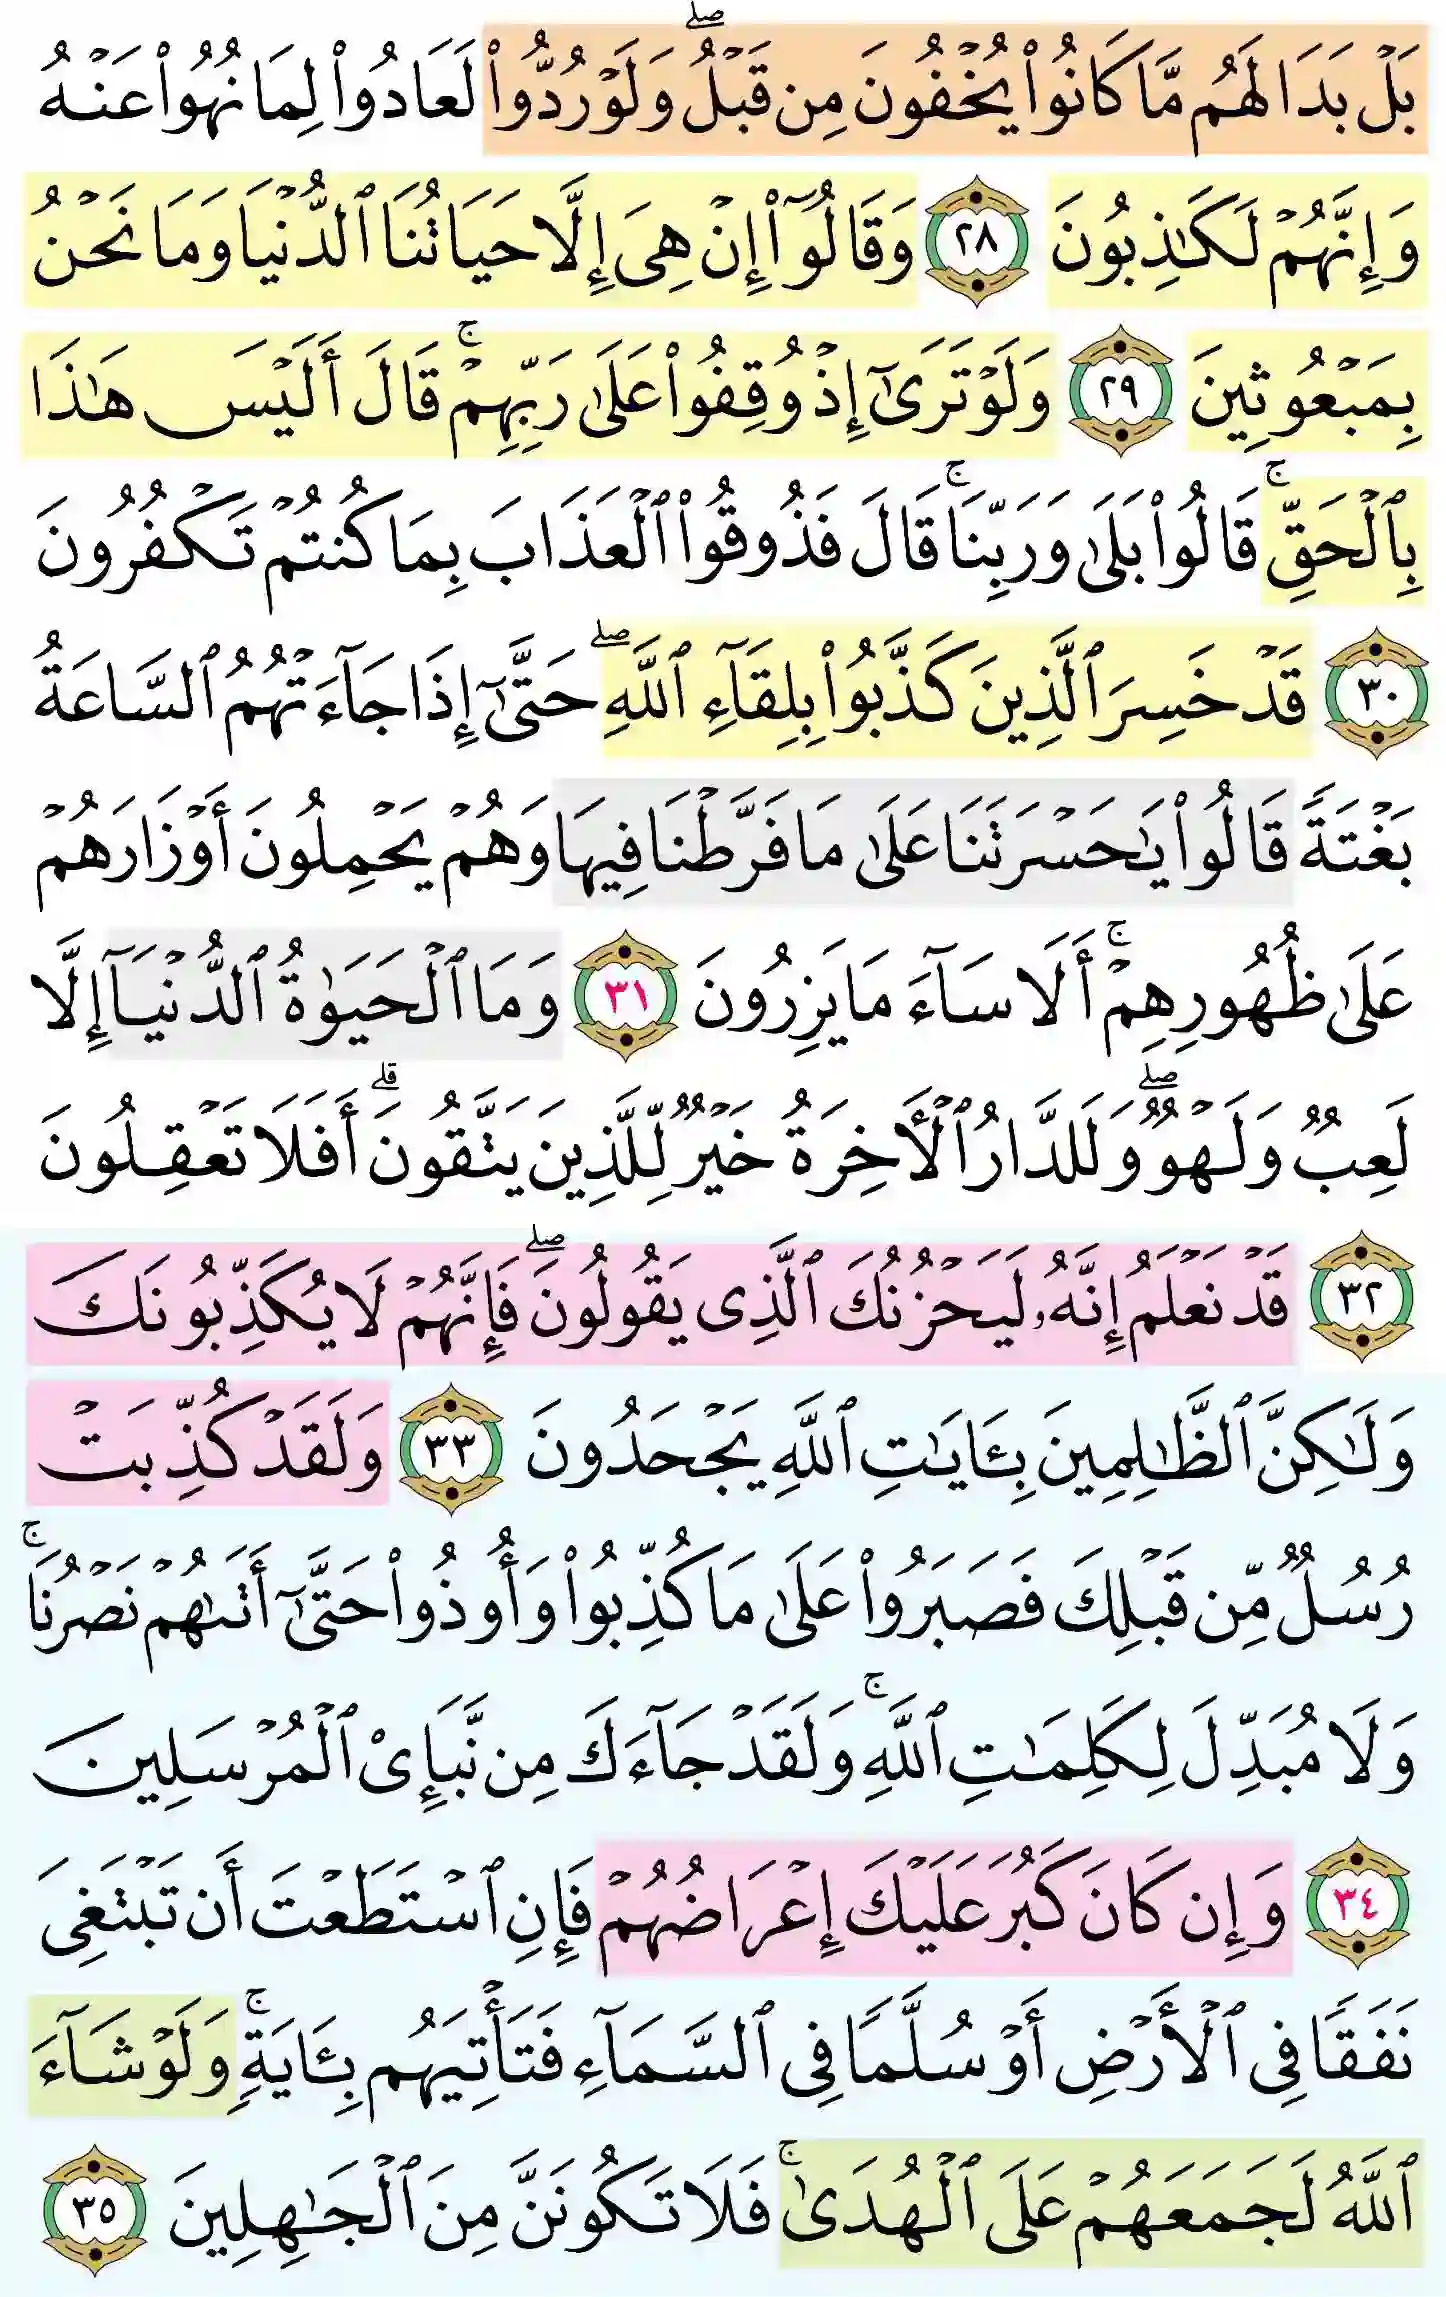 بَلْ بَدَا لَهُم مَّا كَانُوا۟ يُخْفُونَ مِن قَبْلُ ۖ وَلَوْ رُدُّوا۟ لَعَادُوا۟ لِمَا نُهُوا۟ عَنْهُ
وَإِنَّهُمْ لَكَـٰذِبُونَ ٢٨ وَقَالُوٓا۟ إِنْ هِىَ إِلَّا حَيَاتُنَا ٱلدُّنْيَا وَمَا نَحْنُ
بِمَبْعُوثِينَ ٢٩ وَلَوْ تَرَىٰٓ إِذْ وُقِفُوا۟ عَلَىٰ رَبِّهِمْ ۚ قَالَ أَلَيْسَ هَـٰذَا
بِٱلْحَقِّ ۚ قَالُوا۟ بَلَىٰ وَرَبِّنَا ۚ قَالَ فَذُوقُوا۟ ٱلْعَذَابَ بِمَا كُنتُمْ تَكْفُرُونَ
٣٠ قَدْ خَسِرَ ٱلَّذِينَ كَذَّبُوا۟ بِلِقَآءِ ٱللَّهِ ۖ حَتَّىٰٓ إِذَا جَآءَتْهُمُ ٱلسَّاعَةُ
بَغْتَةً قَالُوا۟ يَـٰحَسْرَتَنَا عَلَىٰ مَا فَرَّطْنَا فِيهَا وَهُمْ يَحْمِلُونَ أَوْزَارَهُمْ
عَلَىٰ ظُهُورِهِمْ ۚ أَلَا سَآءَ مَا يَزِرُونَ ٣١ وَمَا ٱلْحَيَوٰةُ ٱلدُّنْيَآ إِلَّا
لَعِبٌ وَلَهْوٌ ۖ وَلَلدَّارُ ٱلْأَخِرَةُ خَيْرٌ لِّلَّذِينَ يَتَّقُونَ ۗ أَفَلَا تَعْقِلُونَ
٣٢ قَدْ نَعْلَمُ إِنَّهُۥ لَيَحْزُنُكَ ٱلَّذِى يَقُولُونَ ۖ فَإِنَّهُمْ لَا يُكَذِّبُونَكَ
وَلَـٰكِنَّ ٱلظَّـٰلِمِينَ بِـَٔايَـٰتِ ٱللَّهِ يَجْحَدُونَ ٣٣ وَلَقَدْ كُذِّبَتْ
رُسُلٌ مِّن قَبْلِكَ فَصَبَرُوا۟ عَلَىٰ مَا كُذِّبُوا۟ وَأُوذُوا۟ حَتَّىٰٓ أَتَىٰهُمْ نَصْرُنَا ۚ
وَلَا مُبَدِّلَ لِكَلِمَـٰتِ ٱللَّهِ ۚ وَلَقَدْ جَآءَكَ مِن نَّبَإِى۟ ٱلْمُرْسَلِينَ
٣٤ وَإِن كَانَ كَبُرَ عَلَيْكَ إِعْرَاضُهُمْ فَإِنِ ٱسْتَطَعْتَ أَن تَبْتَغِىَ
نَفَقًا فِى ٱلْأَرْضِ أَوْ سُلَّمًا فِى ٱلسَّمَآءِ فَتَأْتِيَهُم بِـَٔايَةٍ ۚ وَلَوْ شَآءَ
ٱللَّهُ لَجَمَعَهُمْ عَلَى ٱلْهُدَىٰ ۚ فَلَا تَكُونَنَّ مِنَ ٱلْجَـٰهِلِينَ ٣٥